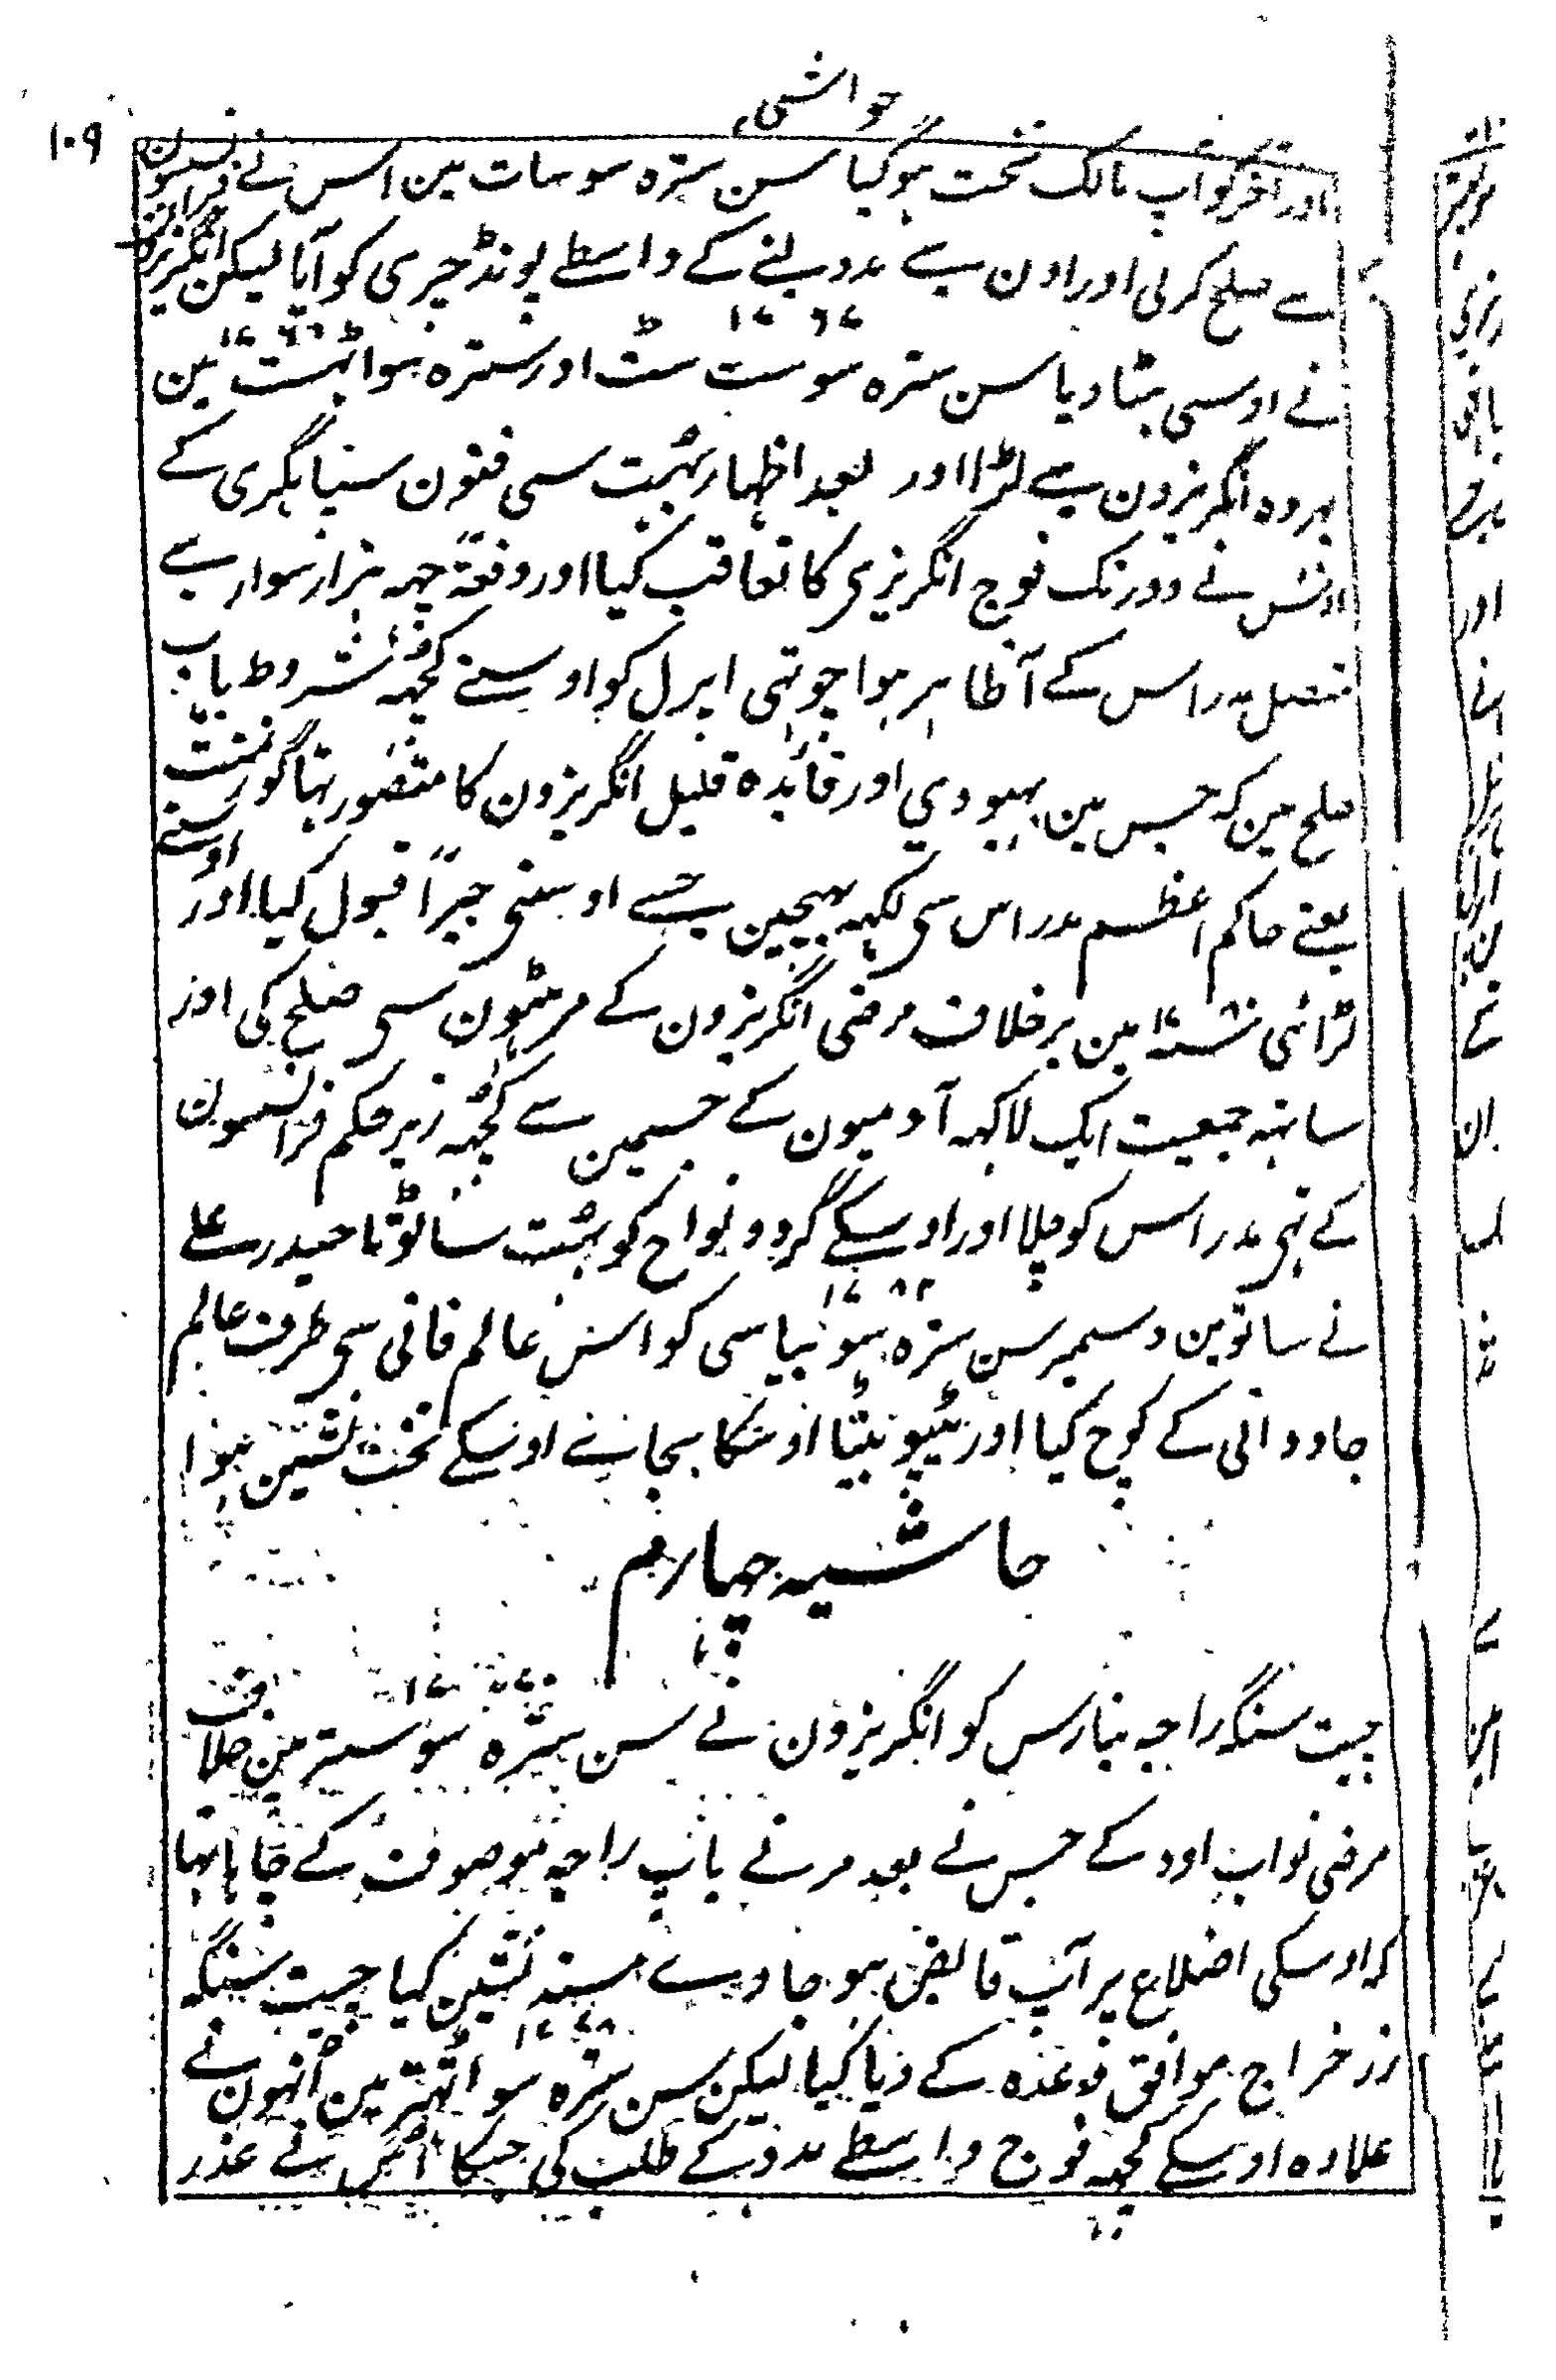 حواشی
۱۰۹
اور آخر کو آپ مالک تخت ہو گیا سن سترہ سو سات مین اس نے فرانسیسون
سے صلح کر لی اور اون سے مدد لینے کے واسطے پونڈچری کو آیا لیکن انگریزون
نے اوسی ہٹا دیا سن سترہ سو ست سٹ ۱۷۶۷ اور سترہ سو اٹہست ۱۷۶۶ مین
پہر وہ انگریزون سے لڑا اور بعد اظہار بہت سی فنون سپاہگری کے
اوس نے دور تک فوج انگریزی کا تعاقب کیا اور دفعۃً چہہ ہزار سوار سے
متصل مدراس کے آ ظاہر ہوا چوتہی اپریل کو اوسنے کچہہ شروط باب
صلح مین کہ جس مین بہبودی اور فائدہ قلیل انگریزون کا متصور تہا گورنمنٹ
یعنے حاکم اعظم مدراس سی لکہہ بہیجین جسے اوسنی جبراً قبول کیا اور اوسنے
لڑائی ۱۷۸۰ مین برخلاف مرضی انگریزون کے مرہٹون سی صلح کی اور
ساتہہ جمعیت ایک لاکہہ آدمیون کے جسمین سے کچہہ زیر حکم فرانسیسون
کے تہی مدراس کو چلا اور اوسکے گرد و نواح کو بہت سا لوٹا حیدر علی
نے ساتوین دسمبر سن سترہ سو بیاسی ۱۷۸۲ کو اس عالم فانی سی طرف عالم
جاودانی کے کوچ کیا اور ٹیپو بیٹا اوسکا بجاے اوسکے تخت نشین ہوا
حاشیہ چہارم
چیت سنگہ راجہ بنارس کو انگریزون نے سن سترہ سو ستر ۱۷۷۰ مین خلاف
مرضی نواب اودہ کے جس نے بعد مرنے باپ راجہ موصوف کے چاہا تہا
کہ اوسکی اضلاع پر آپ قابض ہو جاوے مسند نشین کیا چیت سنگہ
زر خراج موافق وعدہ کے دیا کیا لیکن سن سترہ سو اٹہتر ۱۷۷۸ مین اُنہون نے
علاوہ اوسکے کچہہ فوج واسطے مدد کے طلب کی جسکا اُس نے عذر